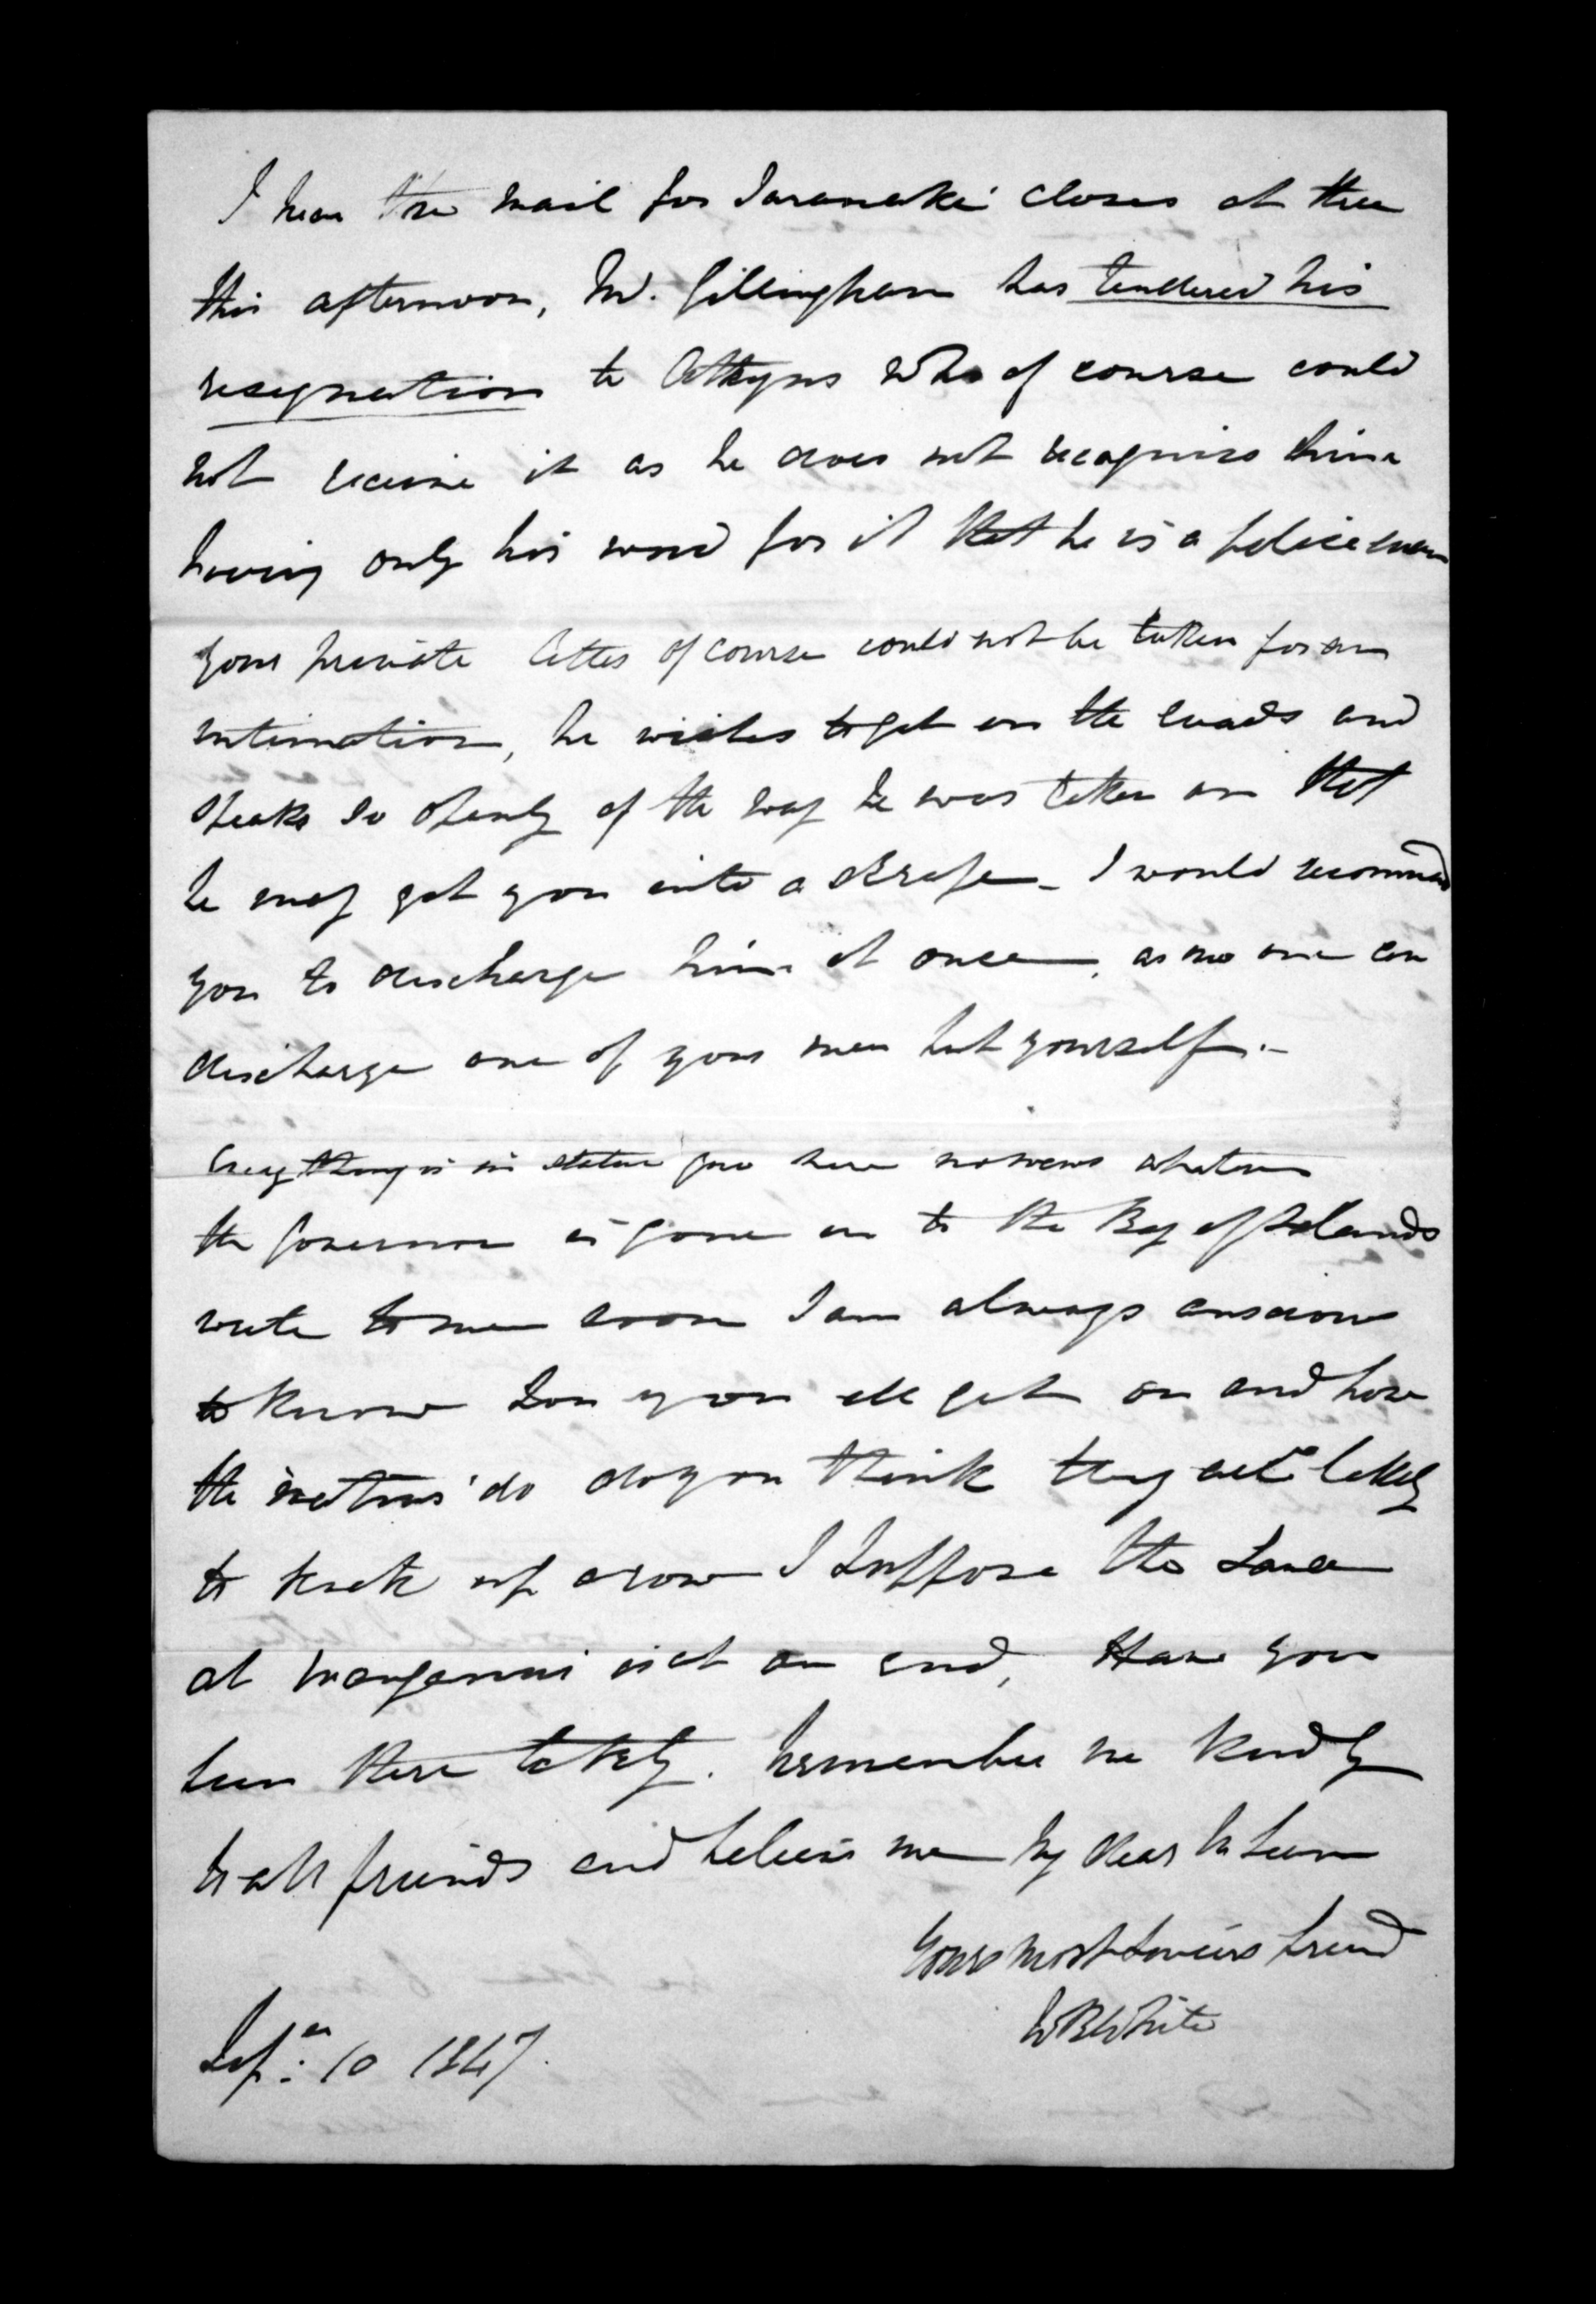 I hear the mail for Taranaki closes at three
this afternoon, Mr. Gillingham has tendered his
resignation to Atkyns who of course could
not receive it as he does not recognise him
having only his word for it that he is a policeman
your private letter of course could not be taken for an
intimation, he wishes to get on the roads and
speaks so openly of the way he was taken on that
he may get you into a scrape - I would recommend
you to discharge him at once, as no one can
discharge one of your men but yourself.-
Every thing is in statue quo here no news whatever
the Governor is gone on to the Bay of Islands
write to me soon I am always anxious
to know how you all get on and how
the natives do do you think they are likely
to kick up a row I suppose the
at Wanganui is at an end, Have you
been there lately. Remember me kindly
to all friends and believe me My dear McLean
Yours most sincere friend
W B White
Sepr. 10 1847.